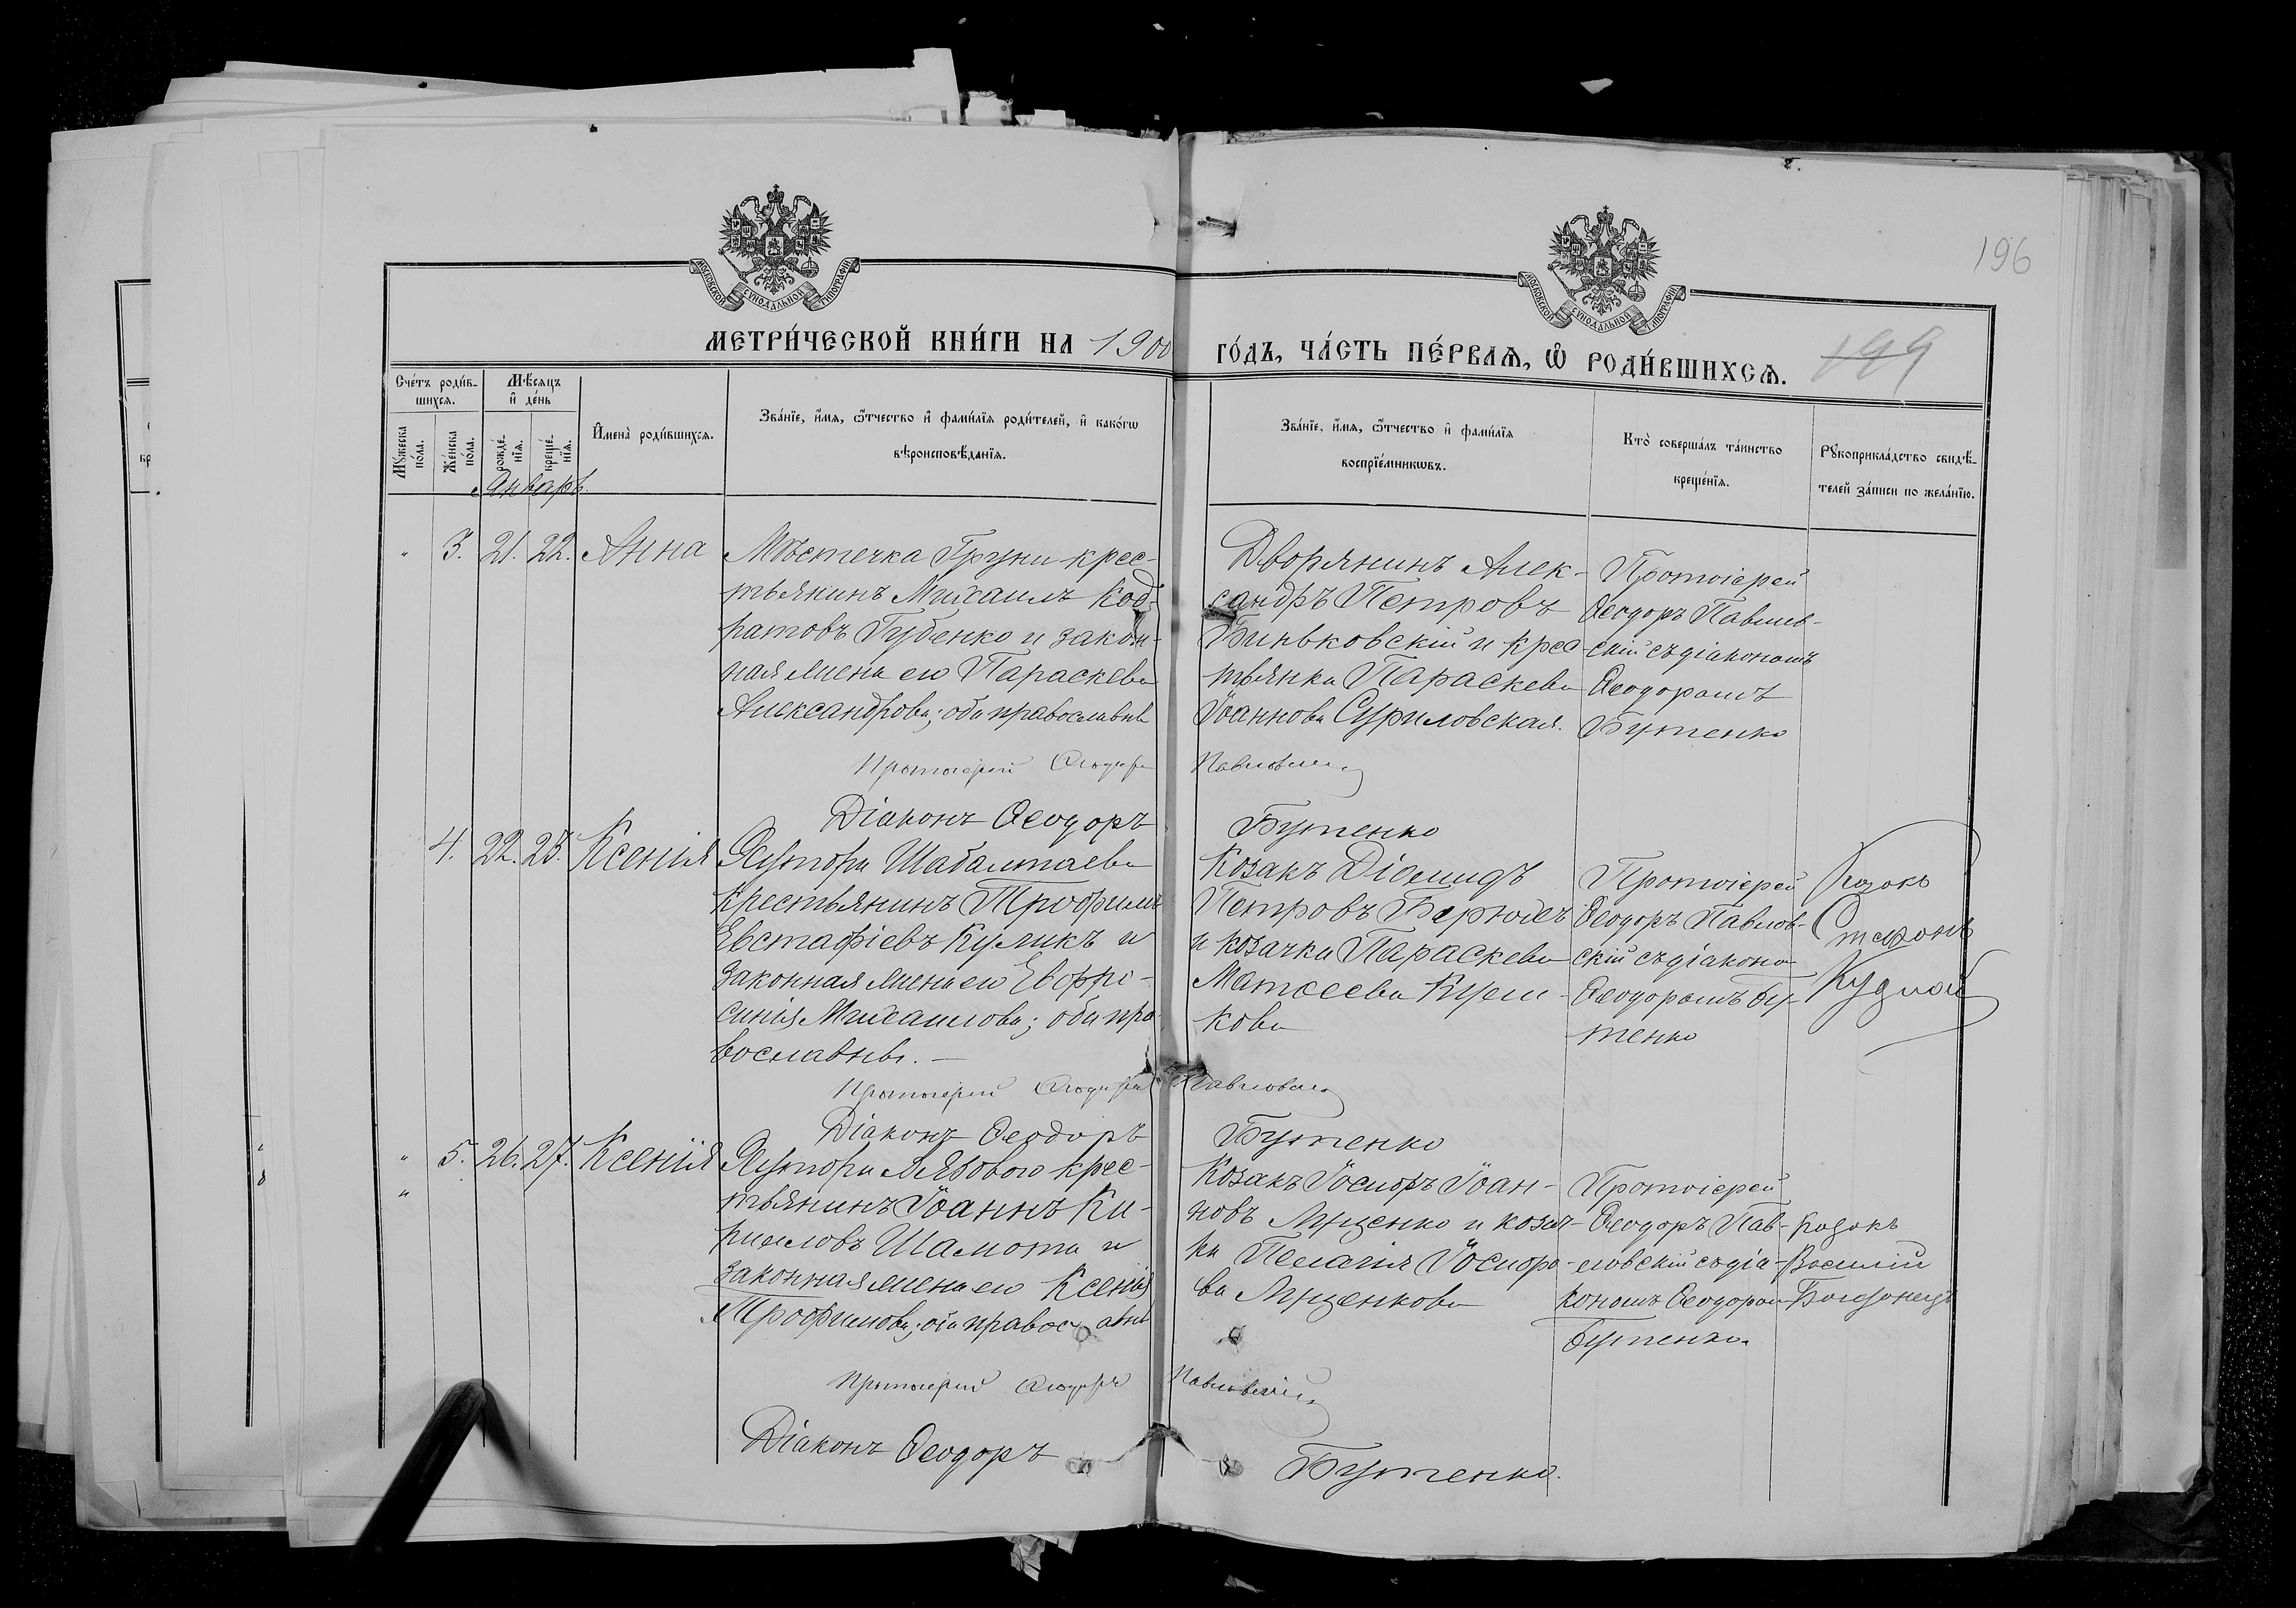 196
МОСКОВСКОЙ СΥНОДАЛЬНОЙ ТИПОГРАФИИ
МОСКОВСКОЙ СΥНОДАЛЬНОЙ ТИПОГРАФИИ
МЕТРИ́ЧЕСКОЙ КНИ́ГИ НА 1900
ГО́ДЪ, ЧА́СТЬ ПЕ́РВАѦ, Ѡ҆ РОДИ́ВШИХСѦ.
199
Сче́тъ роди́в-
шихсѧ.
Мѣ́сѧцъ
и҆ де́нь
Мꙋ́жеска
по́ла.
Же́нска
по́ла.
рожде́-
нїѧ.
креще́-
нїѧ.
И҆мена̀ роди́вшихсѧ.
Зва́нїе, и҆́мѧ, ѻ҆́тчество и҆ фами́лїѧ роди́телей, и҆ како́гѡ
вѣроисповѣ́данїѧ.
Зва́нїе, и҆́мѧ, ѻ҆́тчество и҆ фами́лїѧ
воспрїе́мникѡвъ.
Кто̀ соверша́лъ та́инство
креще́нїѧ.
Рꙋкоприкла́дство свидѣ́-
телей за́писи по жела́нїю.
Январь.
" 3. 21. 22. Анна
Мѣстечка Груни крес-
тьянинъ Михаилъ Код-
ратовъ Губенко и закон-
ная жена его Параскева
Александрова; оба православны
Дворянинъ Алек-
сандръ Петровъ
Биньковскій и крес-
тьянка Параскева
Іоаннова Суриловская.
Протоіерей
Ѳеодоръ Павлов-
скій съ діакономъ
Ѳеодоромъ
Бутенко
Протоіерей Ѳеодоръ Павловскій
Діаконъ Ѳеодоръ Бутенко
4. 22. 23. Ксенія
Хутора Шабалтаева
крестьянинъ Трофимъ
Евстафіевъ Куликъ и
законная жена его Евфро-
синія Михаилова; оба пра-
вославны. —
Козакъ Діомидъ
Петровъ
и козачка Параскева
Матѳеева
кова
Протоіерей
Ѳеодоръ Павлов-
скій съ діакono
Ѳеодоромъ Бу-
тенко
Козакъ
Стефанъ
Протоіерей Ѳеодоръ Павловскій
Діаконъ Ѳеодоръ Бутенко
" 5. 26. 27. Ксенія
"
Хутора Лязового крес-
тьянинъ Іоаннъ Ки-
рилловъ Шамота и
законная жена его Ксенія
Трофимова; оба православны
Козакъ Іосифъ Іоан-
новъ Луценко и козач-
ка Пелагія Іосифо-
ва Луценкова
Протоіерей
Ѳеодоръ Пав-
ловскій съ діа-
кономъ Ѳеодоромъ
Бутенко.
Козакъ
Василій
Протоіерей Ѳеодоръ Павловскій
Діаконъ Ѳеодоръ Бутенко.